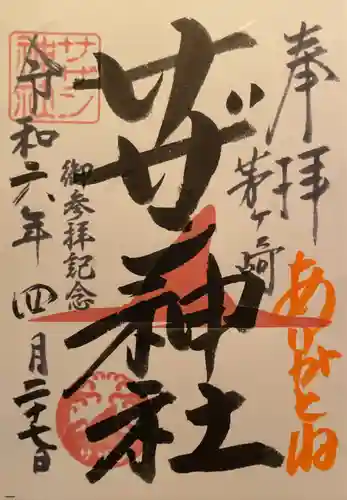 奉拝
茅ヶ崎
ありがとね
サザン神社
御参拝記念
令和六年四月二十七日
サザン
神社